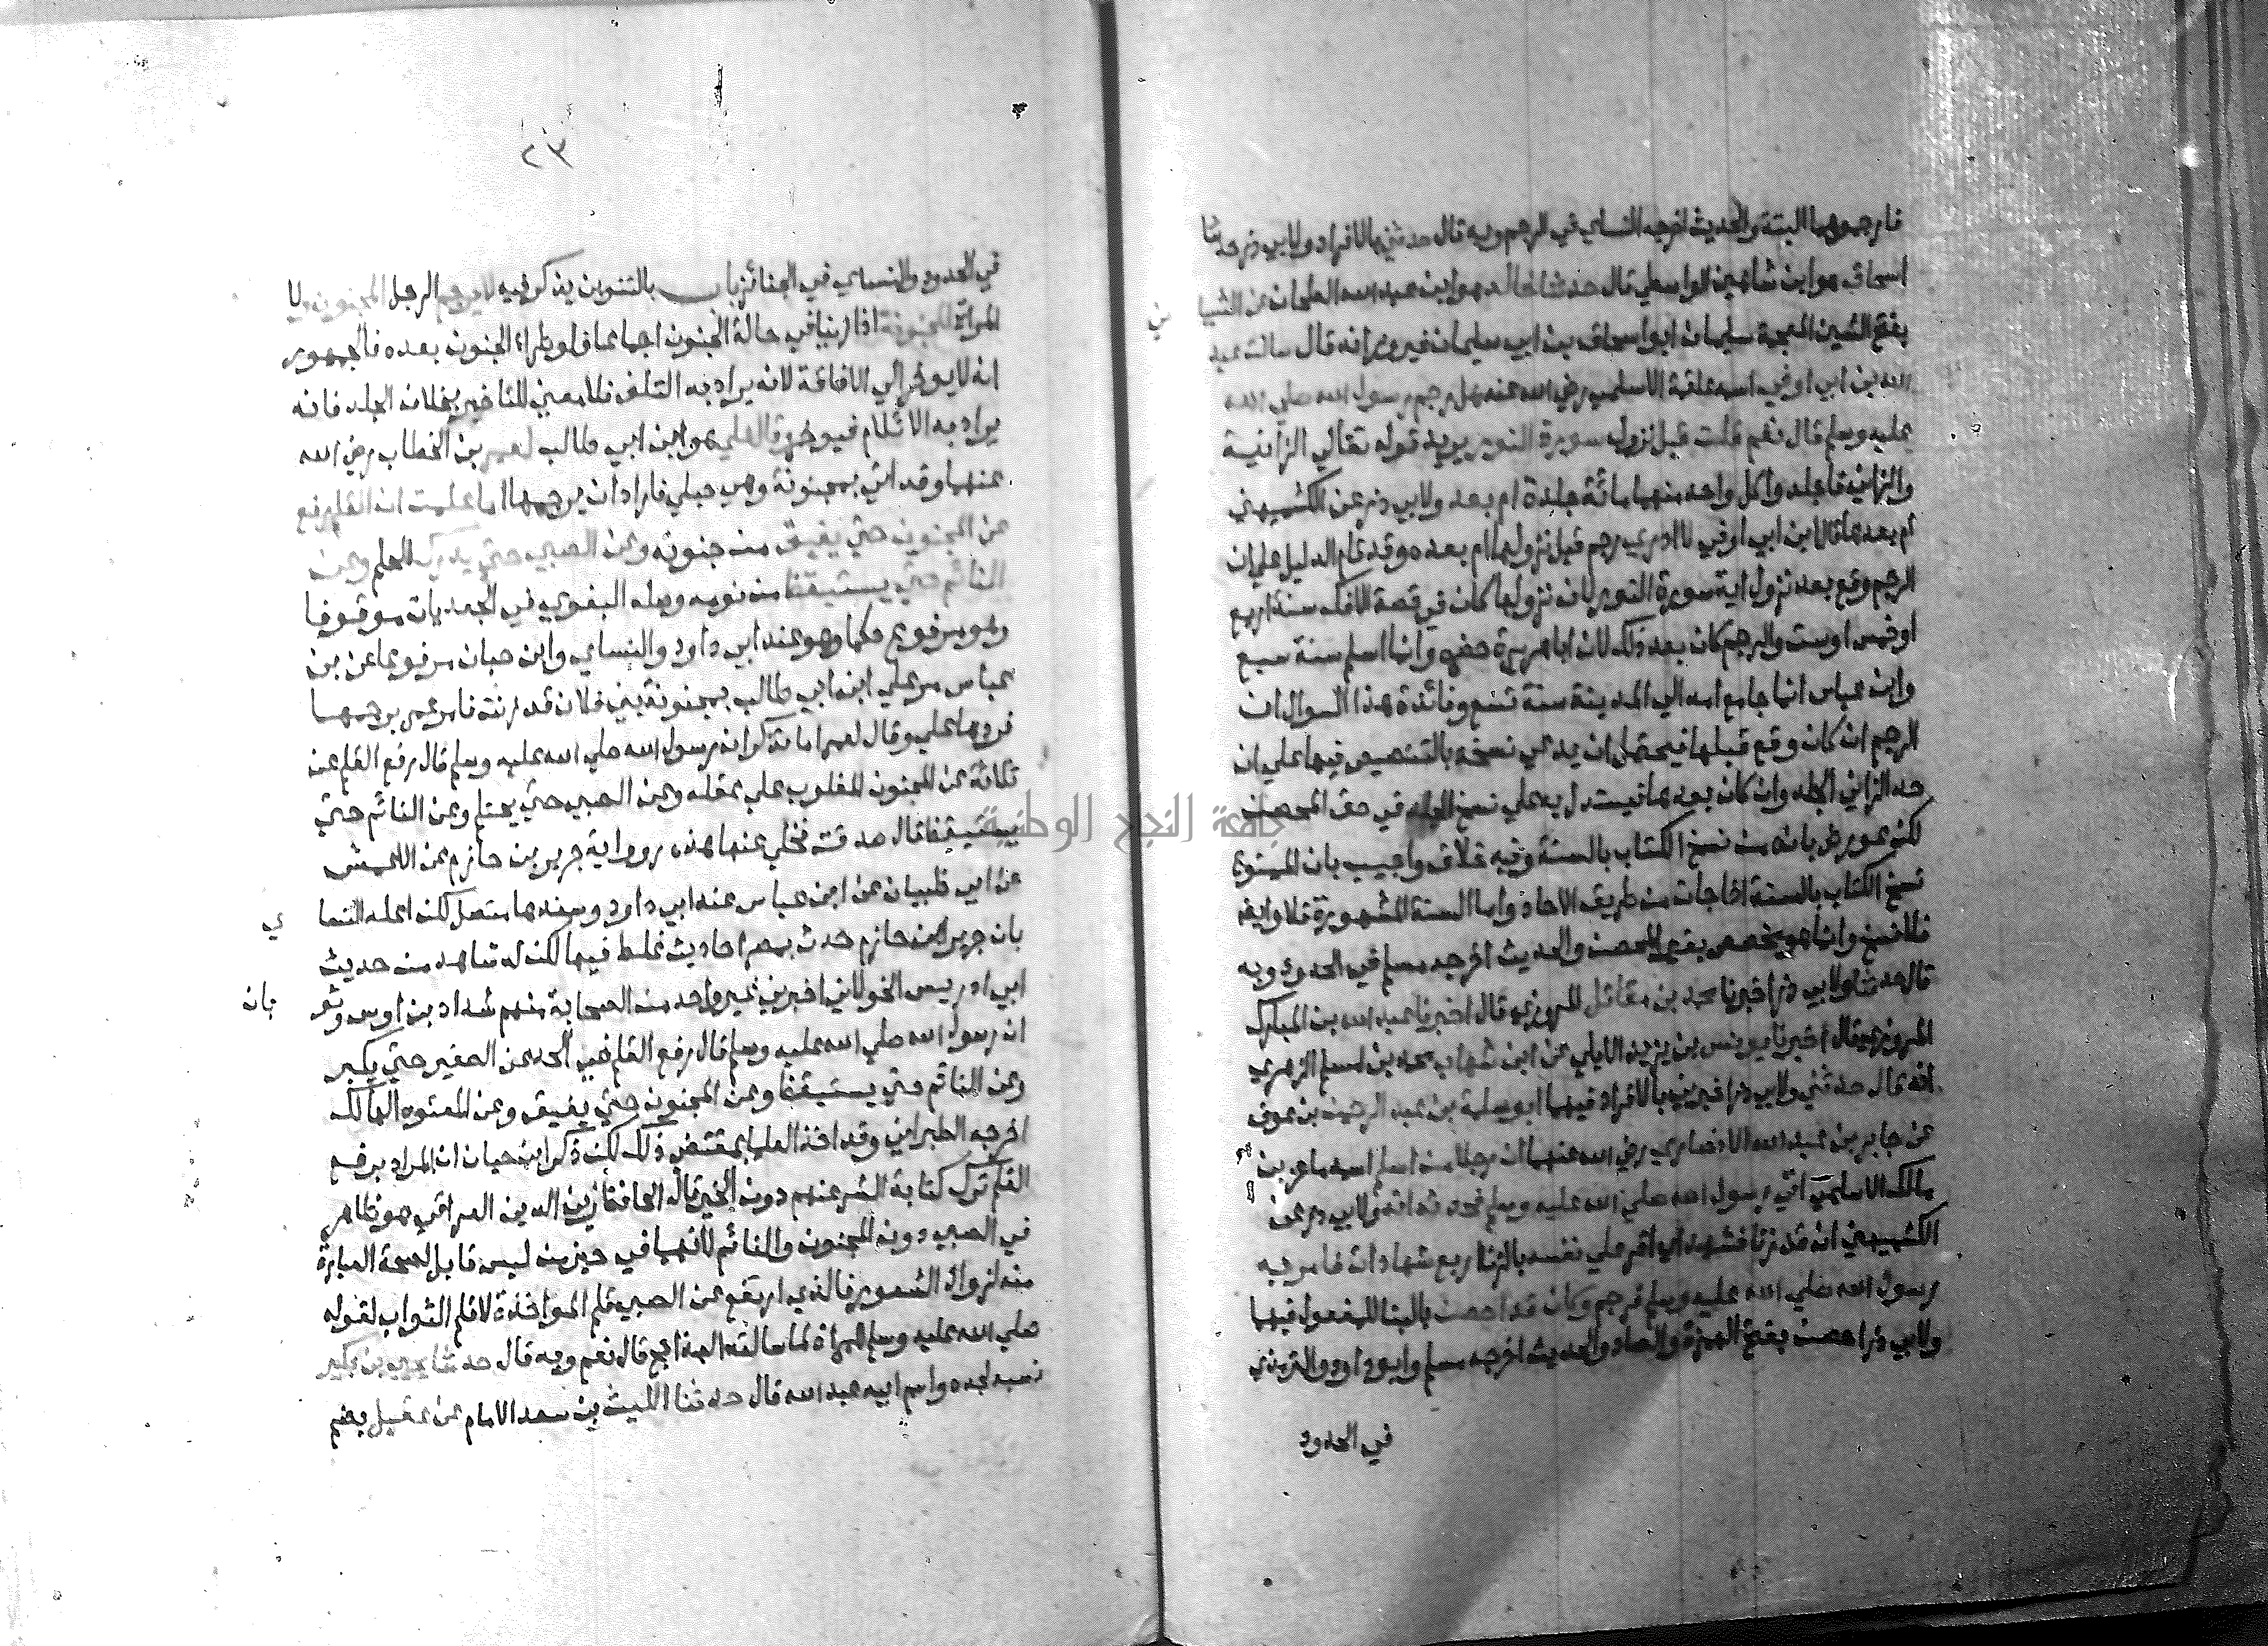 فارجموهما البتة والحديث اخرجه النساي في الرجم وبه قال حدثني بالافراد ولابي ذر حدثنا
اسحاق هو ابن شاهين الواسطي قال حدثنا خالد هو ابن عبد الله الطحان عن الشيبا ني
بفتح الشين المعجمة سليمان ابو اسحاق بن ابي سليمان فيروز انه قال سالت عبد
الله بن ابي اوفي اسمه علقمة الاسلمي رضي الله عنه هل رجم رسول الله صلي الله
عليه وسلم قال نعم قلت قبل نزول سورة النور يريد قوله تعالي الزانية
والزاني فاجلدوا كل واحد منهما مائة جلدة ام بعد ولابي ذر عن الكشميهني
ام بعدها قال ابن ابي اوفي لا ادري رجم قبل نزولها ام بعده وقد قام الدليل علي ان
الرجم وقع بعد نزول اية سورة النور لان نزولها كان في قصة الافك سنة اربع
او خمس او ست والرجم كان بعد ذلك لان ابا هريرة حضره وانما اسلم سنة سبع
وابن عباس انما جا مع امه الي المدينة سنة تسع وفائدة هذا السوال ان
الرجم ان كان وقع قبلها فيحتمل ان يدعي نسخه بالتنصيص فيها علي ان
حد الزاني الجلد وان كان بعدها فيستدل به علي نسخ الجلد في حق المحصن
لكن عورض بانه من نسخ الكتاب بالسنة وفيه خلاف واجيب بان الممنوع
نسخ الكتاب بالسنة اذا جات من طريق الاحاد واما السنة المشهورة فلا وايضا
فلا نسخ وانما هو مخصص بغير المحصن والحديث اخرجه مسلم في الحدود وبه
قال حدثنا ولابي ذر اخبرنا محمد بن مقاتل المروزي قال اخبرنا عبد الله بن المبارك
المروزي قال اخبرنا يونس بن يزيد الايلي عن ابن شهاب محمد بن مسلم الزهري
انه قال حدثني ولابي ذر اخبرني بالافراد فيهما ابو سلمة بن عبد الرحمن بن عوف
عن جابر بن عبد الله الانصاري رضي الله عنهما ان رجلا من اسلم اسمه ماعز بن
مالك الاسلمي اتي رسول الله صلي الله عليه وسلم فحدثه انه ولابي ذر عن
الكشميهني ان قد زنا فشهد اي اقر علي نفسه بالزنا اربع شهادات فامر به
رسول الله صلي الله عليه وسلم فرجم وكان قد احصن بالبنا للمفعول فيهما
ولابي ذر احصن بفتح الهمزة والصاد والحديث اخرجه مسلم وابو داود والترمذي
في الحدود
٢٣
في الحدود والنساي في الجنائز باب بالتنوين يذكر فيه لا يرجم الرجل المجنون ولا
المراة المجنونة اذا زنيا في حالة الجنون اجماعا فلو طراء الجنون بعده فالجمهور
انه لا يوخر الي الافاقة لانه يراد به التلف فلا معني للتاخير بخلاف الجلد فانه
يراد به الايلام فيوخر وقال علي هو ابن ابي طالب لعمر بن الخطاب رضي الله
عنهما وقد اتي بمجنونة وهي حبلي فاراد ان يرجمها اما علمت ان القلم رفع
عن المجنون حتي يفيق من جنونه وعن الصبي حتي يدرك الحلم وعن
النائم حتي يستيقظ من نومه وصله البغوي في الجعديات موقوفا
وهو مرفوع حكما وهو عند ابي داود والنساي وابن حبان مرفوعا عن بن
عباس مر علي ابن ابي طالب بمجنونة بني فلان قد زنت فامر عمر برجمها
فردها علي وقال لعمر اما تذكر ان رسول الله صلي الله عليه وسلم قال رفع القلم عن
ثلاثة عن المجنون المغلوب علي عقله وعن الصبي حتي يحتلم وعن النائم حتي
يستيقظ قال صدقت فخلي عنها هذه رواية جرير بن حازم عن الاعمش
عن ابي ظبيان عن ابن عباس عند ابي داود وسندها متصل لكن اعله النسا ي
بان جرير بن حازم حدث بمصر احاديث غلط فيها لكن له شاهد من حديث
ابي ادريس الخولاني اخبرني غير واحد من الصحابة منهم شداد بن اوس وثو بان
ان رسول الله صلي الله عليه وسلم قال رفع القلم في الحد عن الصغير حتي يكبر
وعن النائم حتي يستيقظ وعن المجنون حتي يفيق وعن المعتوه الهالك
اخرجه الطبراني وقد اخذ العلما بمقتضي ذلك لكن ذكر ابن حبان ان المراد برفع
القلم ترك كتابة الشر عنهم دون الخير قال الحافظ زين الدين العراقي هو ظاهر
في الصبي دون المجنون والنائم لانهما في حيز من ليس قابل لصحة العبادة
منه لزوال الشعور فالذي ارتفع عن الصبي قلم المواخذة لا قلم الثواب لقوله
صلي الله عليه وسلم للمراة لما سالته الهذا حج قال نعم وبه قال حدثنا يحيي بن بكير
نسبه لجده واسم ابيه عبد الله قال حدثنا الليث بن سعد الامام عن عقيل بضم
جامعة النجاح الوطنية